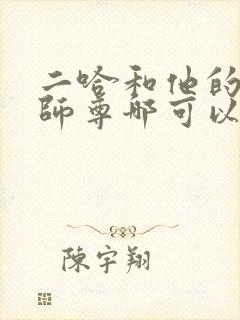 二哈和他的
師尊哪可以
陳宇翔